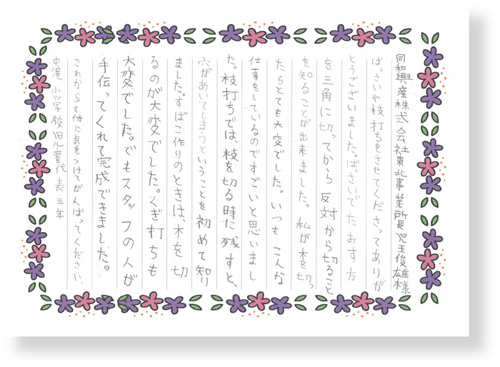 同和興産株式会社東北事業所長児玉俊雄様
ばっさいや枝打ちをさせてくださってありが
とうございました。ばっさいでたおす方
を三角に切ってから反対から切ること
を知ることが出来ました。私が木を切っ
たらとても大変でした。いつもこんな
仕事をしているのですごいと思いまし
た。枝打ちでは、枝を切る時に残すと、
穴があいてしまうということを初めて知り
ました。すばこ作りのときは、木を切
るのが大変でした。くぎ打ちも
大変でした。でもスタッフの人が
手伝ってくれて完成できました。
これからも体に気をつけてがんばってください。
滝小学校児童代表五年